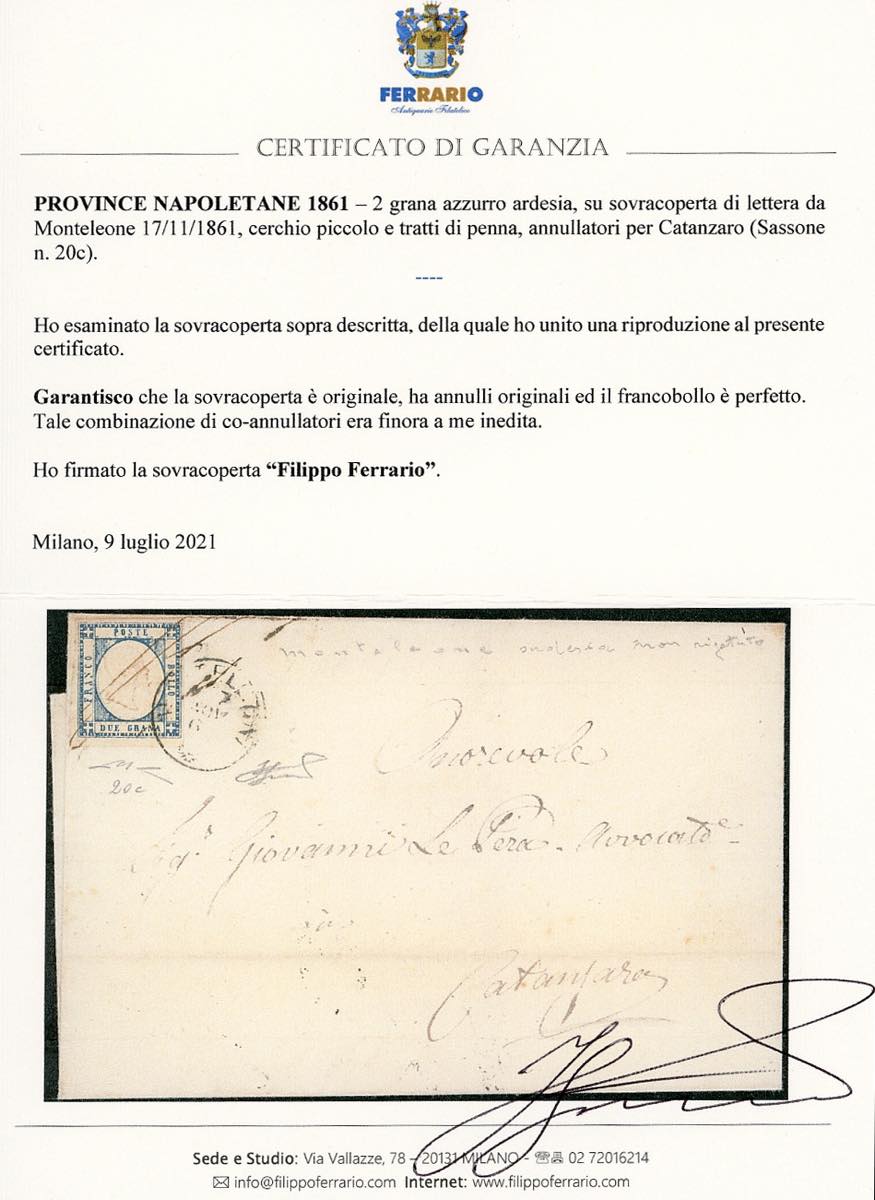 FERRARIO
Antiquario Filatelico
CERTIFICATO DI GARANZIA
PROVINCE NAPOLETANE 1861 – 2 grana azzurro ardesia, su sovracoperta di lettera da
Monteleone 17/11/1861, cerchio piccolo e tratti di penna, annullatori per Catanzaro (Sassone
n. 20c).
----
Ho esaminato la sovracoperta sopra descritta, della quale ho unito una riproduzione al presente
certificato.
Garantisco che la sovracoperta è originale, ha annulli originali ed il francobollo è perfetto.
Tale combinazione di co-annullatori era finora a me inedita.
Ho firmato la sovracoperta “Filippo Ferrario”.
Milano, 9 luglio 2021
POSTE
FRANCO
BOLLO
DUE GRANA
monteleone non
20c
Onorevole
Sigr Giovanni Le Pera - Avvocato
Catanzaro
Sede e Studio: Via Vallazze, 78 – 20131 MILANO - 02 72016214
info@filippoferrario.com Internet: www.filippoferrario.com